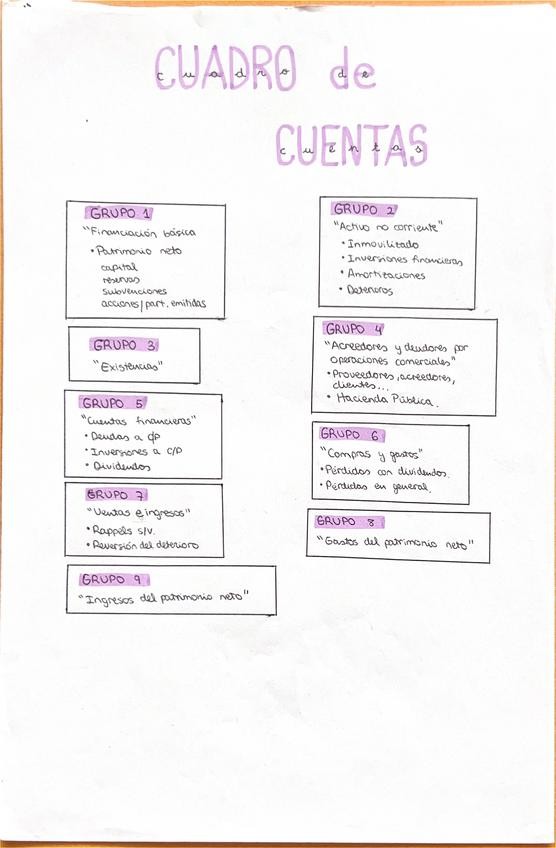 CUADRO de
cuadro de
CUENTAS
cuentas
GRUPO 1
"Financiación básica
• Patrimonio neto
capital
reservas
subvenciones
acciones/part. emitidas
GRUPO 2
"Activo no corriente"
• Inmovilizado
• Inversiones financieras
• Amortizaciones
• Deterioros
GRUPO 3
"Existencias"
GRUPO 4
"Acreedores y deudores por
operaciones comerciales"
• Proveedores, acreedores,
clientes...
• Hacienda Pública.
GRUPO 5
"Cuentas financieras"
• Deudas a c/p
• Inversiones a C/P
• Dividendos
GRUPO 6
"Compras y gastos"
• Pérdidas con dividendos.
• Pérdidas en general.
GRUPO 7
"Ventas e ingresos"
• Rappels s/v.
• Reversión del deterioro
GRUPO 8
"Gastos del patrimonio neto"
GRUPO 9
"Ingresos del patrimonio neto"